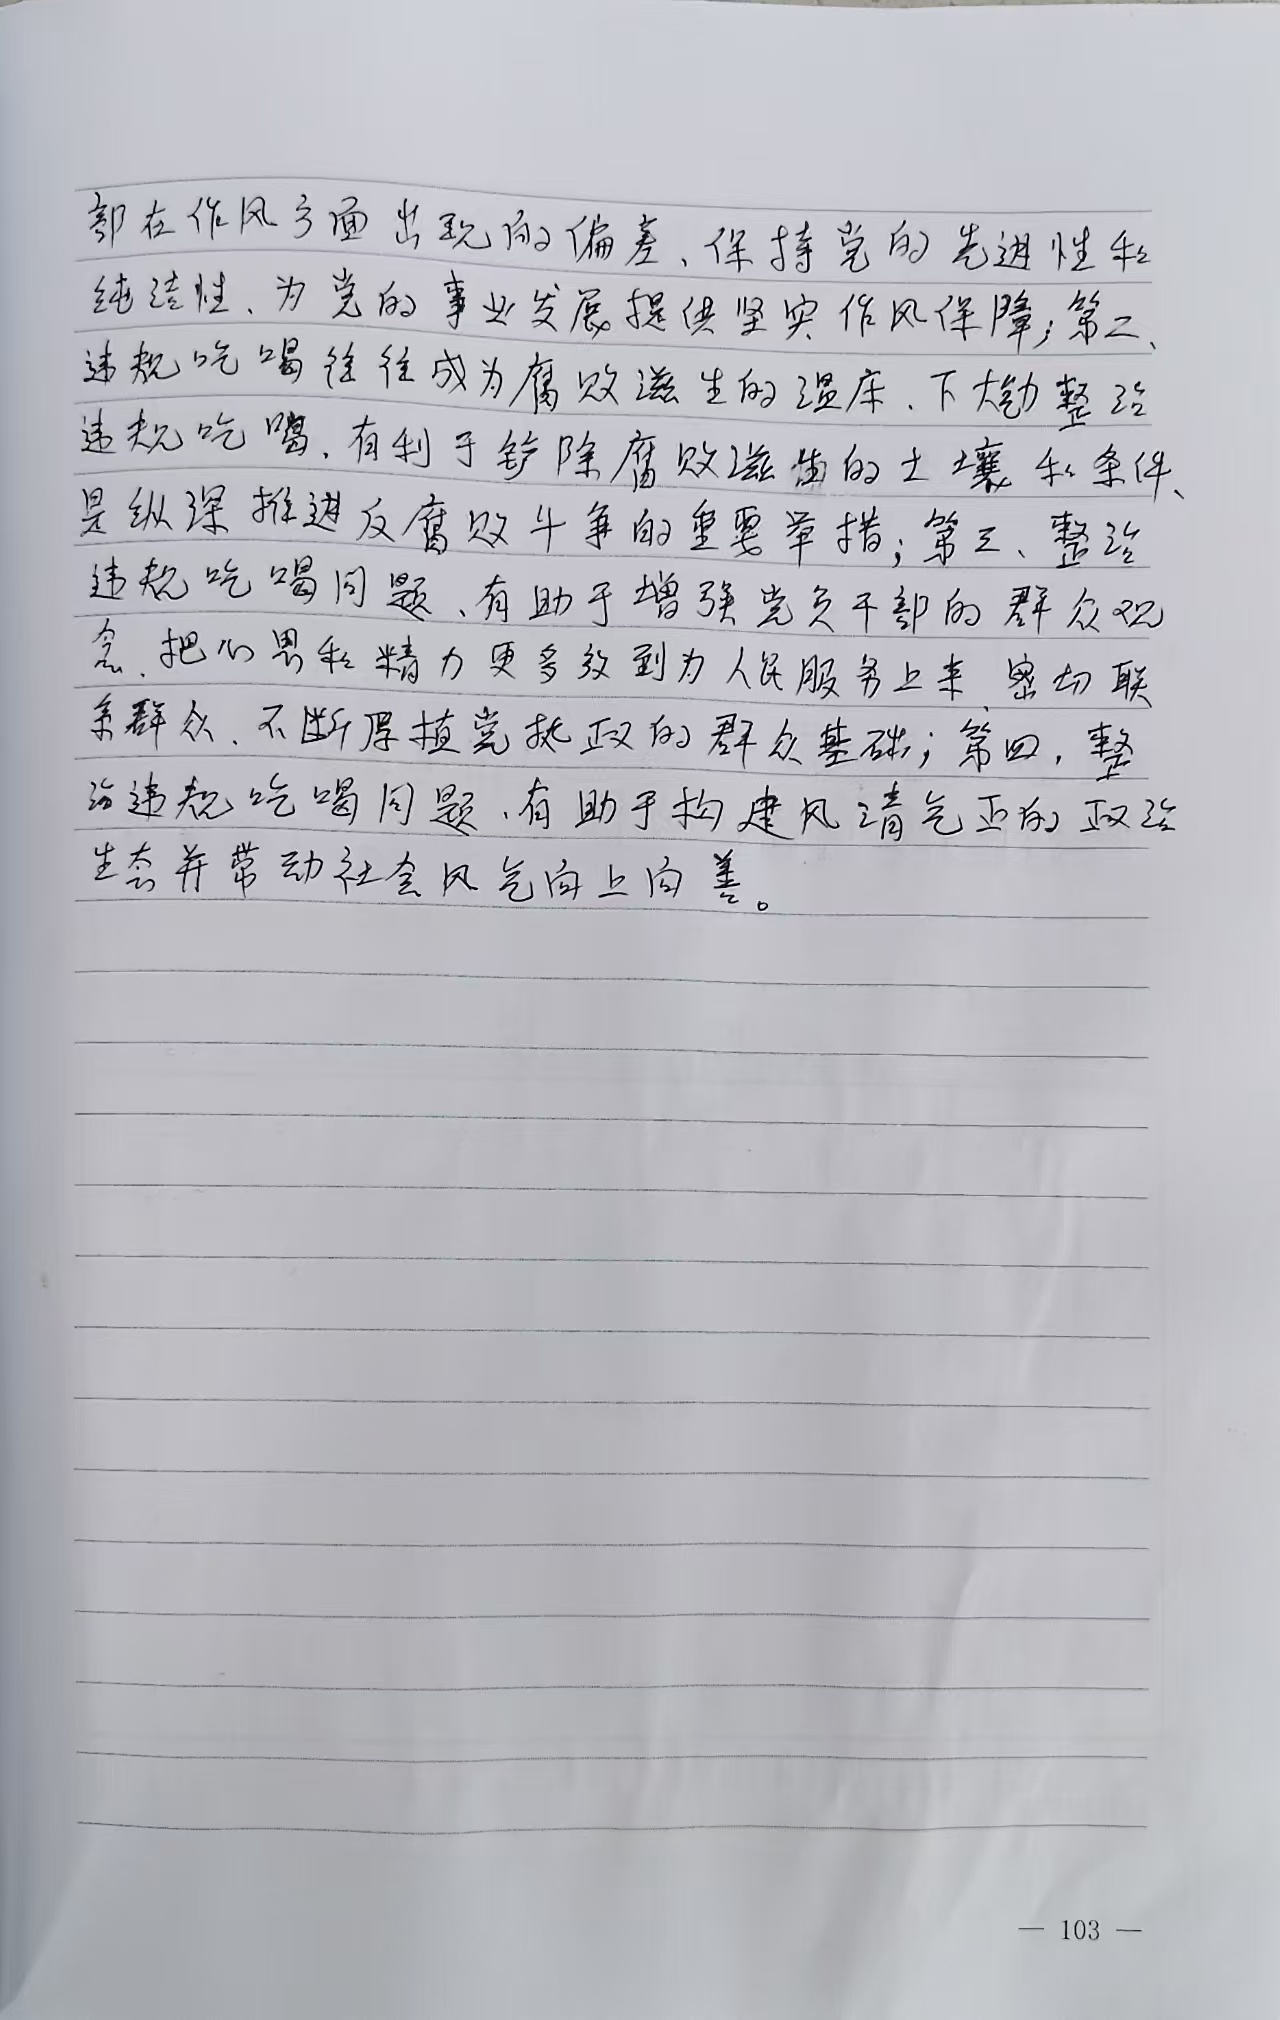 部在作风方面出现的偏差、保持党的先进性和
纯洁性、为党的事业发展提供坚实作风保障；第二、
违规吃喝往往成为腐败滋生的温床、下大力整治
违规吃喝、有利于铲除腐败滋生的土壤和条件、
是纵深推进反腐败斗争的重要举措；第三、整治
违规吃喝问题、有助于增强党员干部的群众观
念、把心思和精力更多放到为人民服务上来、密切联
系群众、不断厚植党执政的群众基础；第四，整
治违规吃喝问题、有助于构建风清气正的政治
生态并带动社会风气向上向善。
— 103 —